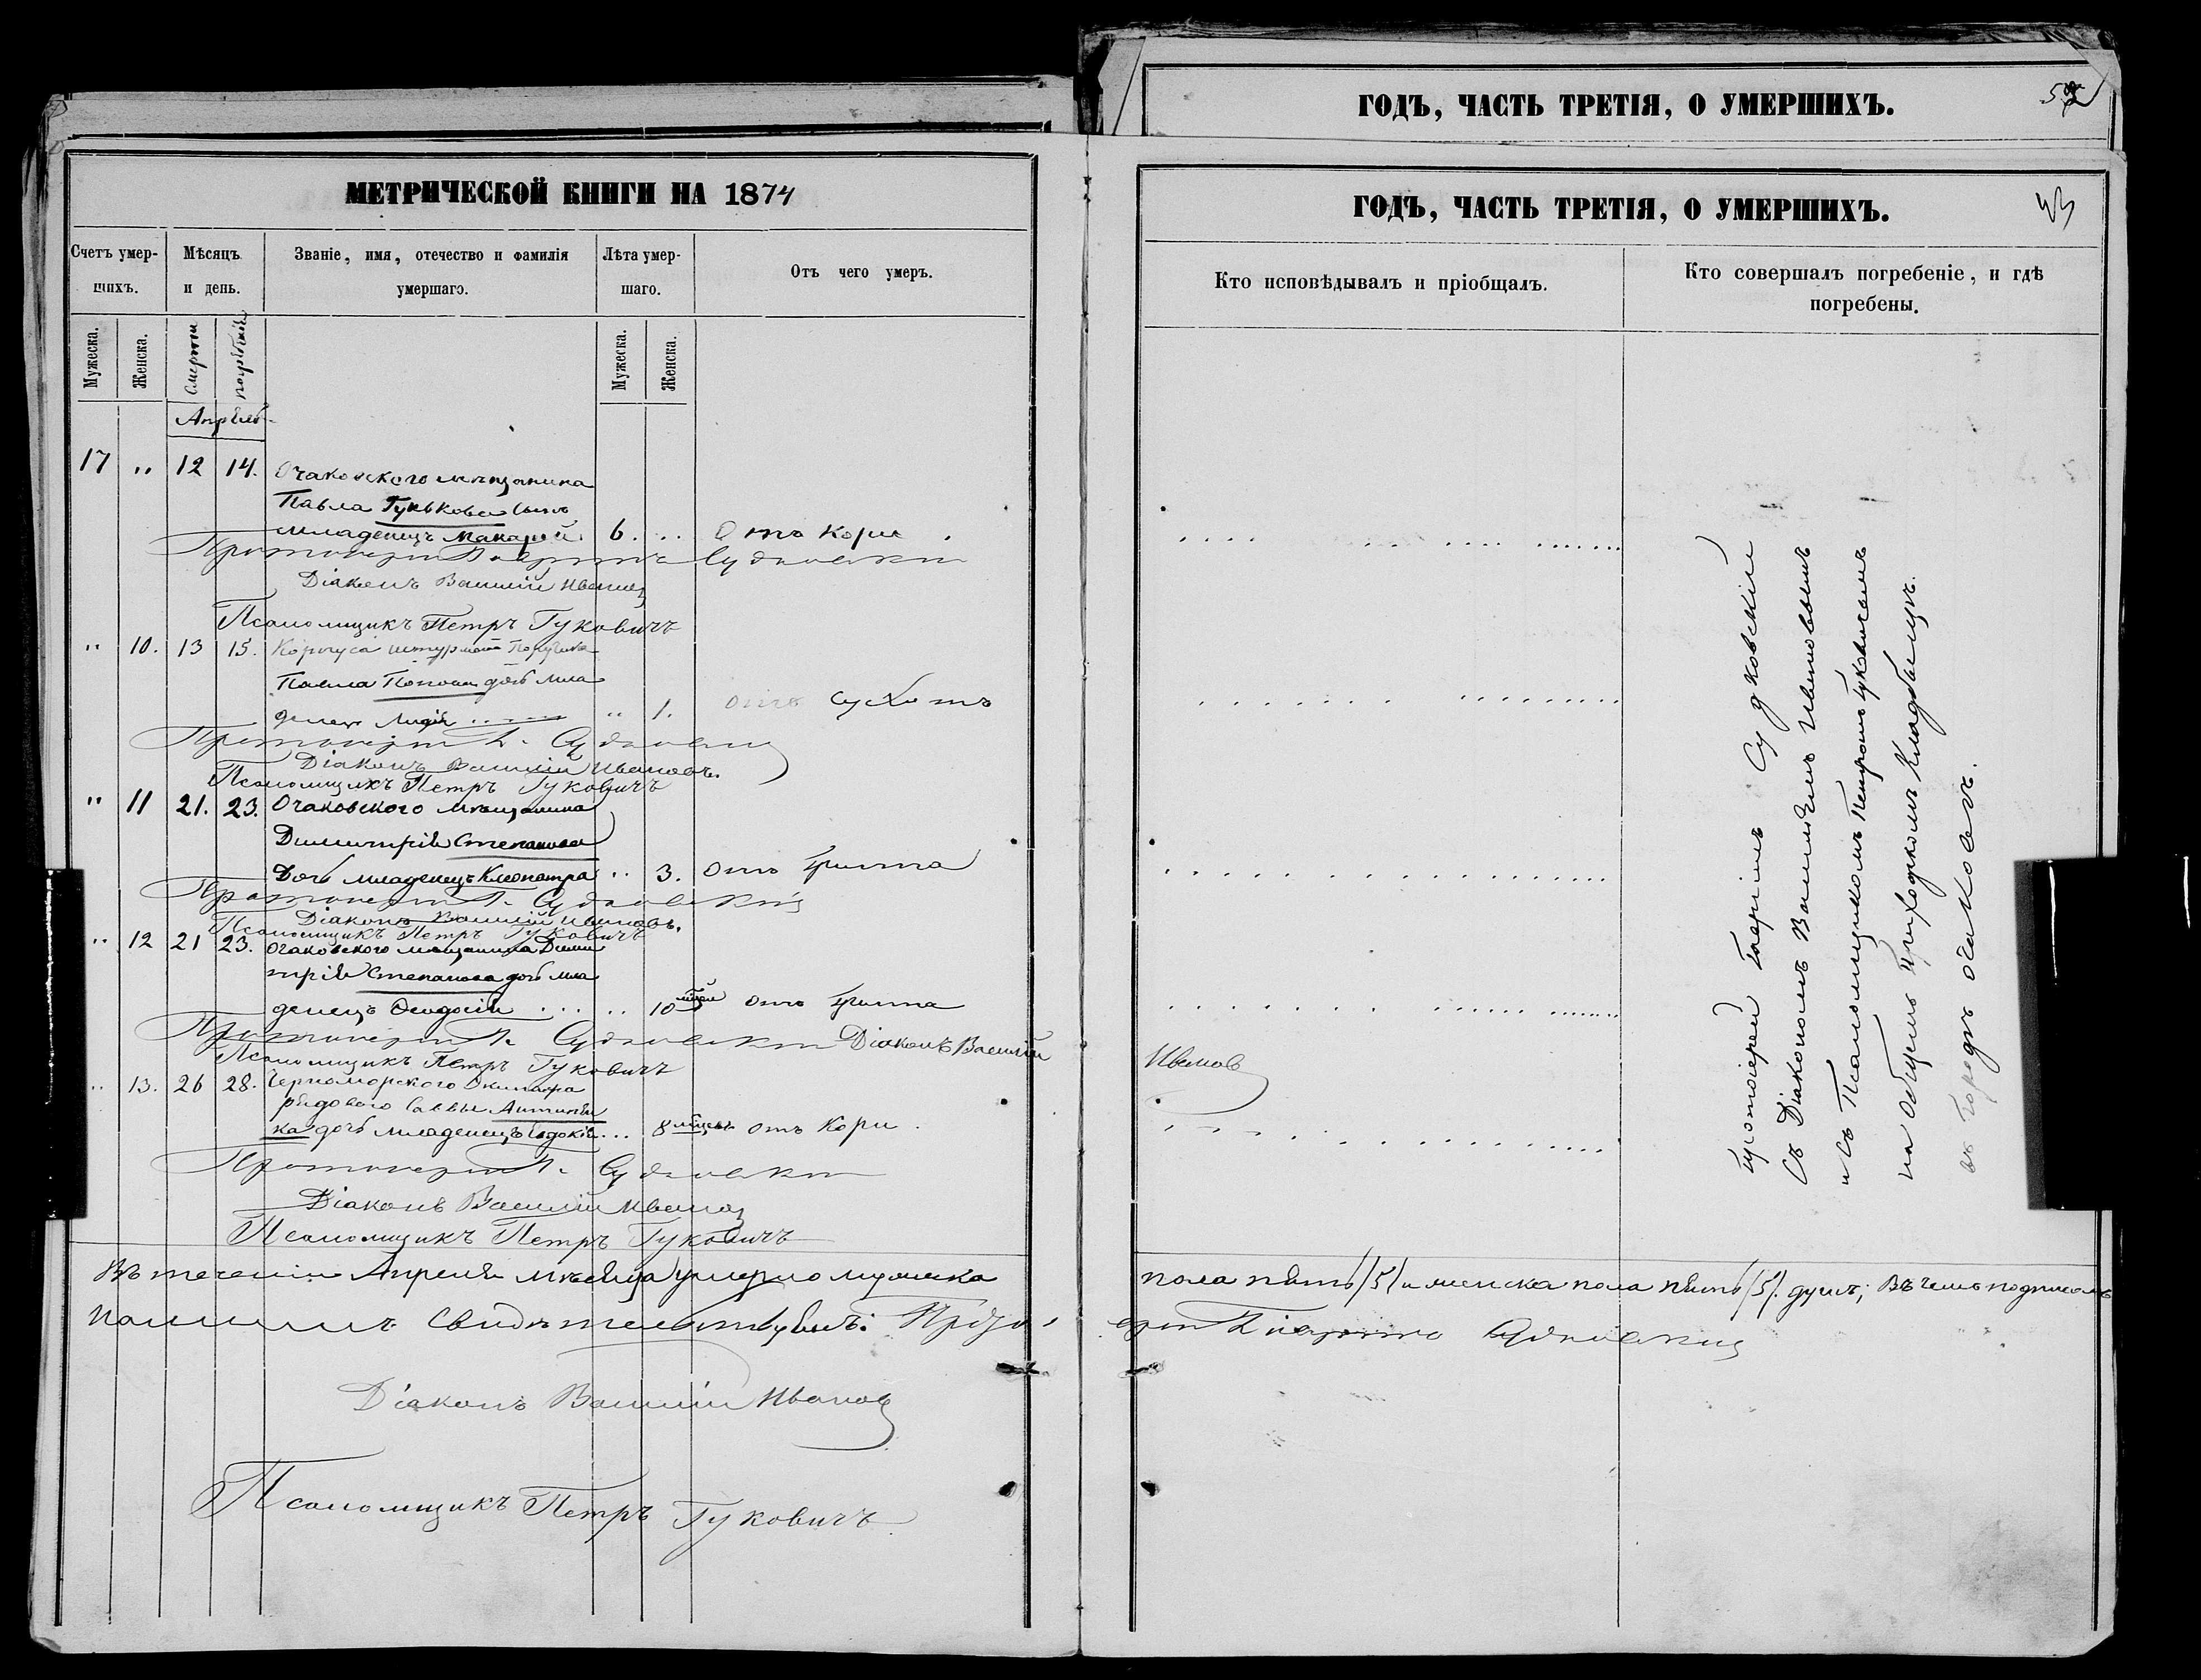 ГОДЪ, ЧАСТЬ ТРЕТІЯ, О УМЕРШИХЪ.
МЕТРИЧЕСКОЙ КНИГИ НА 1874
ГОДЪ, ЧАСТЬ ТРЕТІЯ, О УМЕРШИХЪ. 43
Счетъ умершихъ. Мѣсяцъ и день. Званіе, имя, отечество и фамилія умершаго. Лѣта умершаго. Отъ чего умеръ.
Мужеска. Женска. Смерти погребенія Мужеска. Женска.
Апрѣль
17 " 12 14. Очаковского мѣщанина
Павла Гунькова сынъ
младенецъ Макарій 6. .. Отъ кори
Протоіерей Гавріилъ Судковскій
Діаконъ Василій Ивановъ
Псаломщикъ Петръ Гуковичъ
" 10. 13 15. Корпуса штурман Поручика
Павла Попова дочь мла
денец Лидія " 1. отъ сухотъ
Протоіерей Г. Судковскій
Діаконъ Василій Ивановъ.
Псаломщикъ Петръ Гуковичъ
" 11 21. 23. Очаковского мѣщанина
Димитрія Степанова
дочь младенецъ Клеопатра .. 3. отъ крупа
Протоіерей Г. Судковскій
Діаконъ Василій Ивановъ.
Псаломщикъ Петръ Гуковичъ
" 12 21 23. Очаковского мѣщанина Дими
трія Степанова дочь мла
денецъ Феодосія .. 10 мѣсяц отъ крупа
Протоіерей Г. Судковскій Діаконъ Василій
Ивановъ
Псаломщикъ Петръ Гуковичъ
" 13. 26 28. Черноморского Экипажа
рядового Саввы
ка дочь младенецъ Евдокія 8 мѣсяц. отъ кори
Протоіерей Г. Судковскій
Діаконъ Василій Ивановъ
Псаломщикъ Петръ Гуковичъ
Въ теченіи Апреля мѣсяца умерло мужеска
Діаконъ Василій Ивановъ
Псаломщикъ Петръ Гуковичъ
Кто исповѣдывалъ и пріобщалъ. Кто совершалъ погребеніе, и гдѣ погребены.
Протоіерей Гавріилъ Судковскій
съ Діакономъ Василіемъ Ивановымъ
и съ Псаломщикомъ Петромъ Гуковичемъ
на общемъ приходскомъ кладбищѣ.
въ городѣ Очаковѣ.
пола пять /5/ и женска пола пять /5/. душъ; въ чемъ подписомъ
Гавріилъ Судковскій